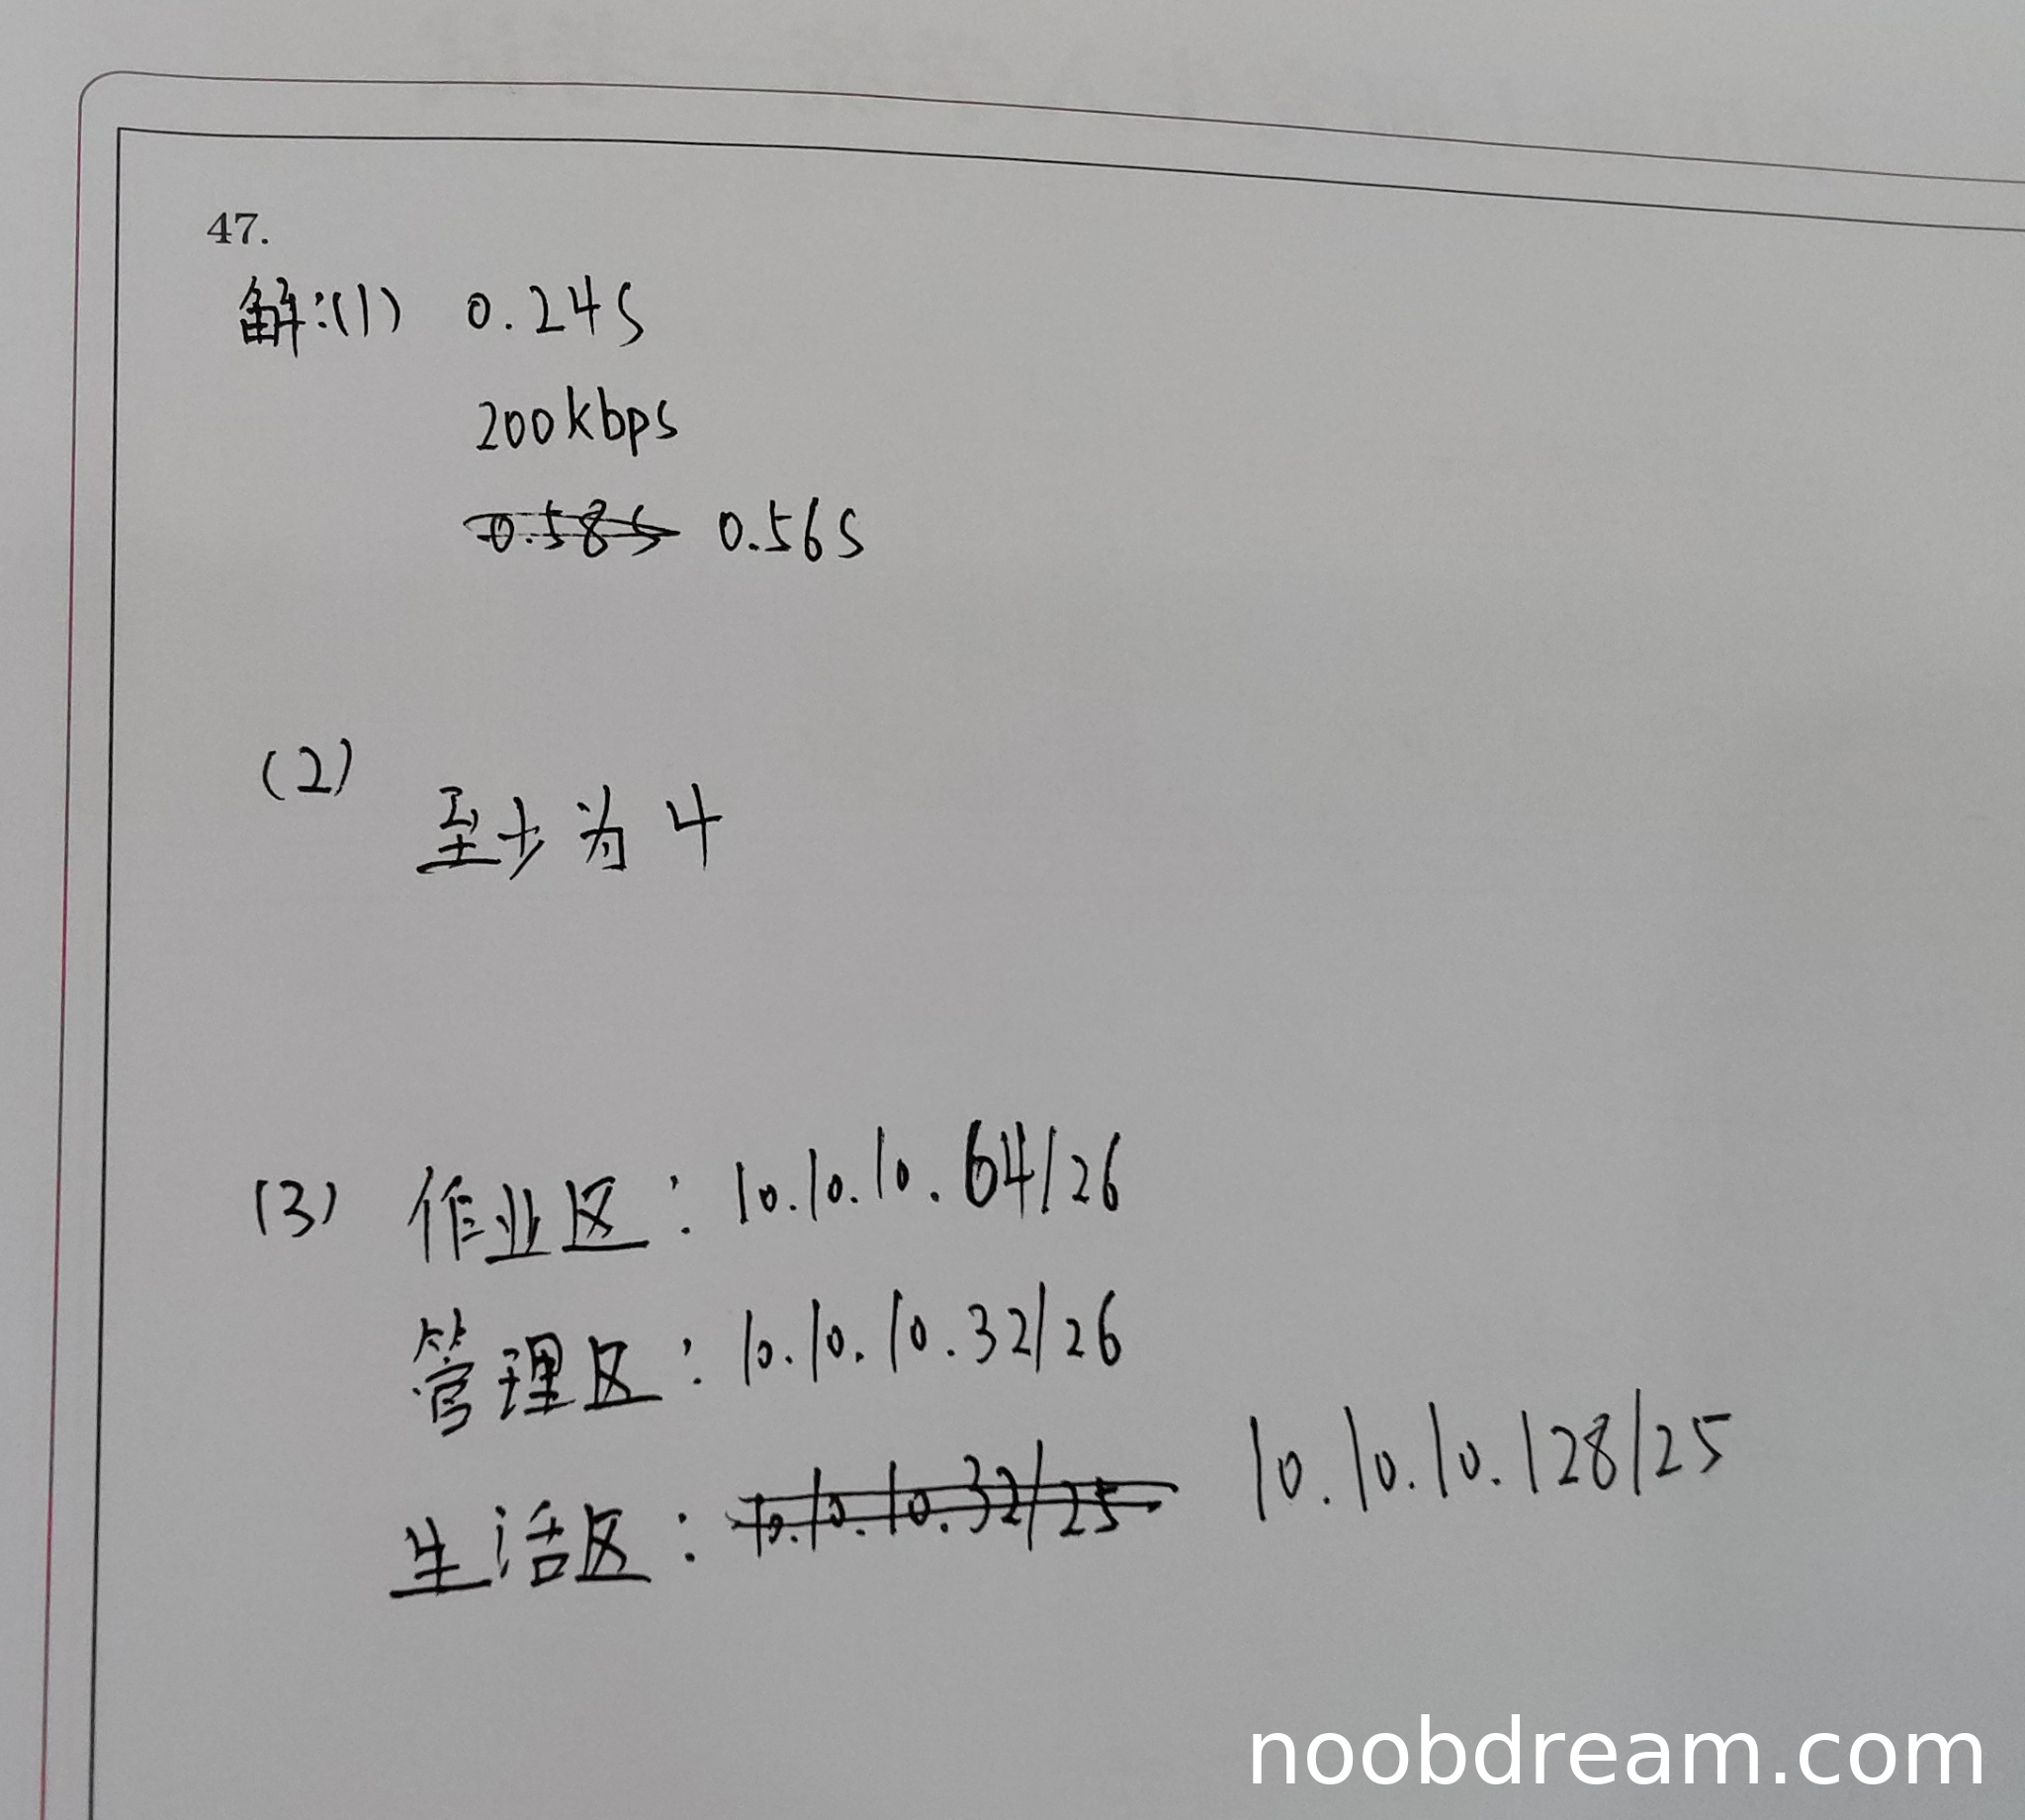 47.
解:(1) 0.24s
200kbps
0.58s 0.56s
(2)
至少为4
(3) 作业区: 10.10.10.64/26
管理区: 10.10.10.32/26
生活区: 10.10.10.32/25 10.10.10.128/25
noobdream.com